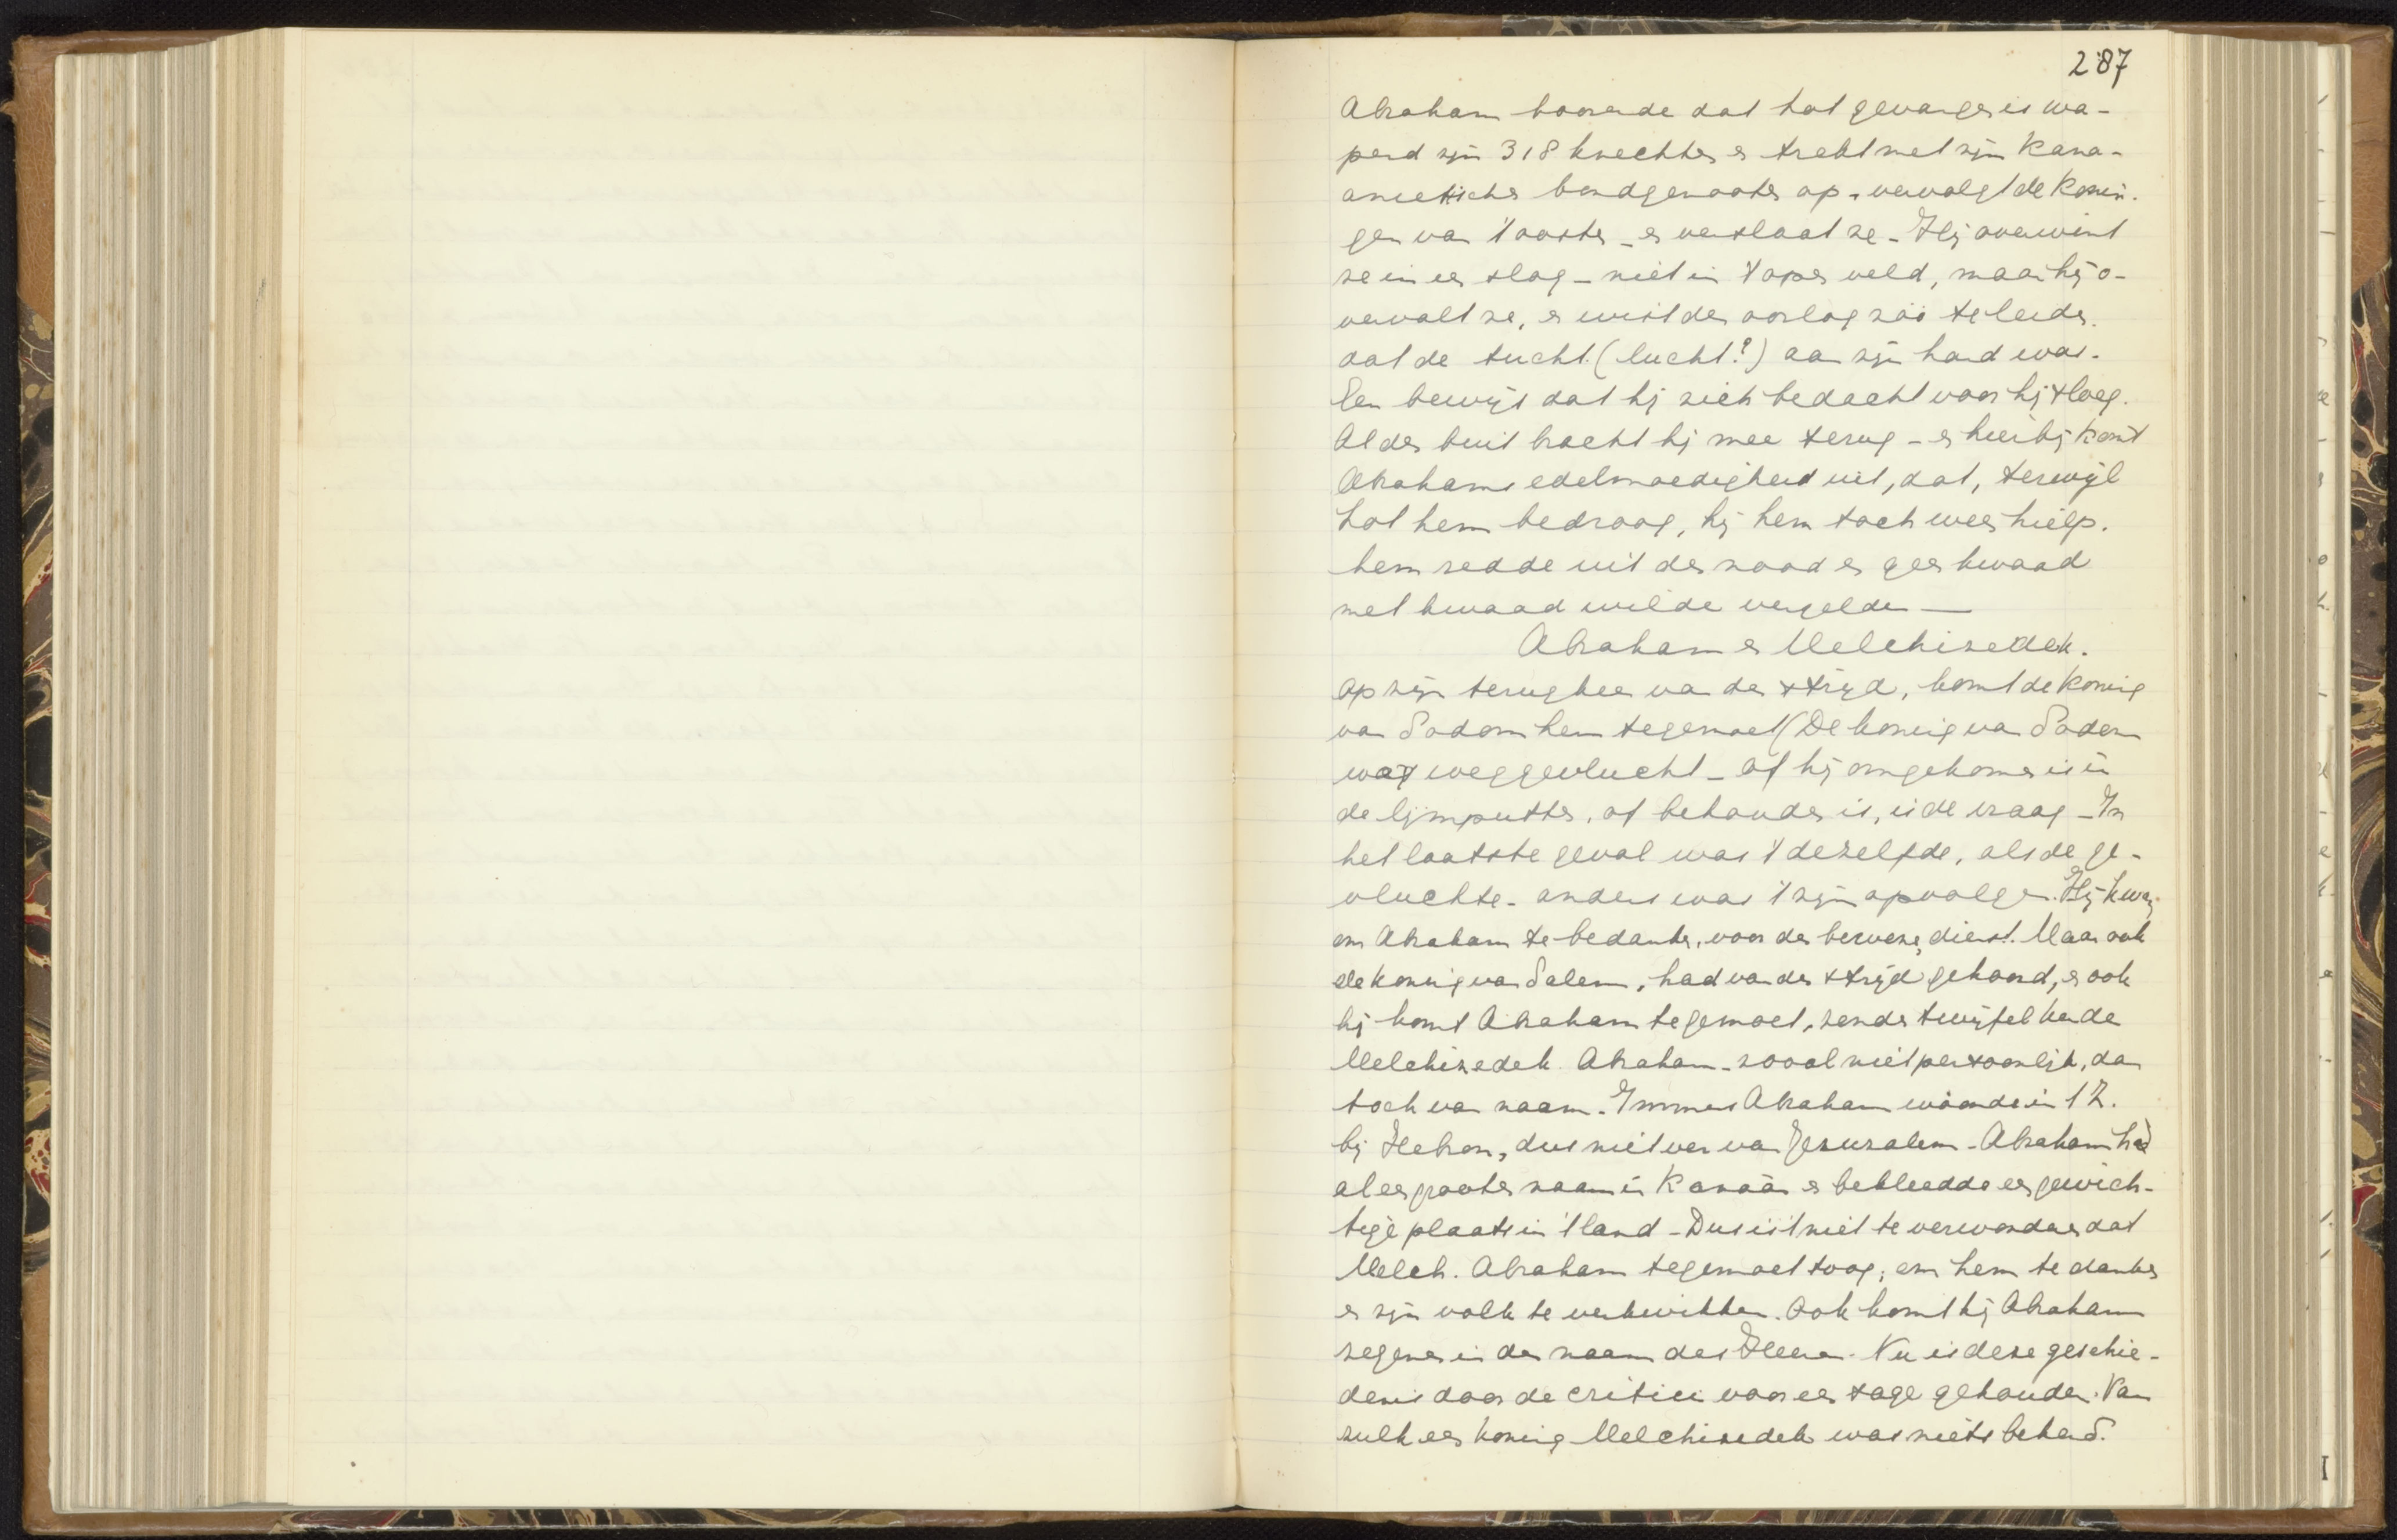 287
Abraham hoorende dat Lot gevangen is wa-
pend zijn 318 knechten en trekt met zijn Kana-
aneetische bondgenooten op, vervolgt de Konin-
gen van 't oosten - en verslaat ze - Hij overwint
ze in een slag - niet in 't open veld, maar hij o-
vervalt ze, en wist den oorlog zóó te leiden.
dat de tucht (lucht?) aan zijn hand was.
Een bewijs dat hij zich bedacht voor hij sloeg.
Al den buit bracht hij mee terug - en hierbij komt
Abrahams edelmoedigheid uit, dat, terwijl
Lot hem bedroog, hij hem toch weer hielp.
hem redde uit den nood en geen kwaad
met kwaad wilde vergelden —
Abraham en Melchizedek.
Op zijn terugkeer van den strijd, komt de Koning
van Sodom hem tegemoet (De koning van Sodom
was weggevlucht - of hij omgekomen is in
de lijmputten, of behouden is, is de vraag - In
het laatste geval was 't dezelfde, als de ge-
vluchte - anders was 't zijn opvolger. Hij kwam
om Abraham te bedanken, voor den bewezen dienst. Maar ook
de koning van Salem, had van den strijd gehoord, en ook
hij komt Abraham tegemoet, zonder twijfel kende
Melchizedek Abraham - zooal niet persoonlijk, dan
toch van naam. Immers Abraham woonde in 't Z.
bij Hebron, dus niet ver van Jeruzalem - Abraham had
al een grooten naam in Kanaän en bekleedde een gewich-
tige plaats in 't land - Dus is 't niet te verwonderen dat
Melch. Abraham tegemoet toog, om hem te danken
en zijn volk te verkwikken. Ook komt hij Abraham
zegenen in den naam des Heeren. Nu is deze geschie-
denis door de critici voor een sage gehouden. Van
zulk een koning Melchizedek was niets bekend.